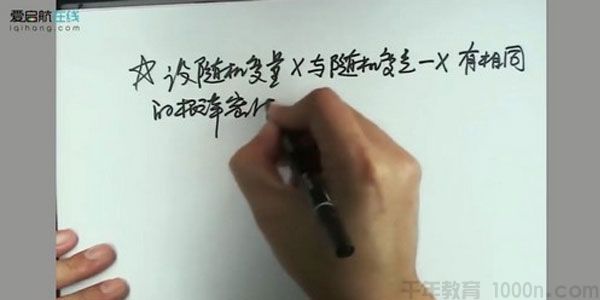 爱启航在线
iqihang.com
☆设随机变量X与随机变量-X有相同
的概率密
千年教育 1000n.com